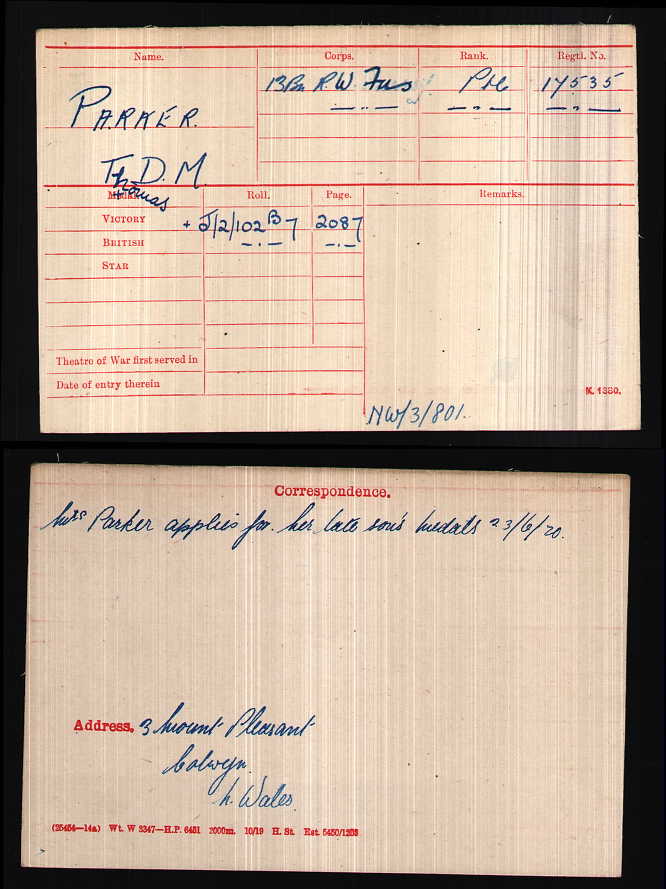 Name. Corps. Rank. Regtl. No.
PARKER. 13Bn R.W. Fus Pte 17535
— " — — " — — " —
T. D. M.
Thomas
Medal. Roll. Page. Remarks.
VICTORY + J/2/102 B 7 2087
BRITISH — . — — . —
STAR
Theatre of War first served in
Date of entry therein
K. 1380.
NW/3/801.
Correspondence.
Mrs Parker applies for her late son's medals 23/6/20.
Address. 3 Mount Pleasant
Colwyn
N. Wales.
(25454—14a) Wt. W 3347—H.P. 6481 2000m. 10/19 H. St. Est. 5450/1288